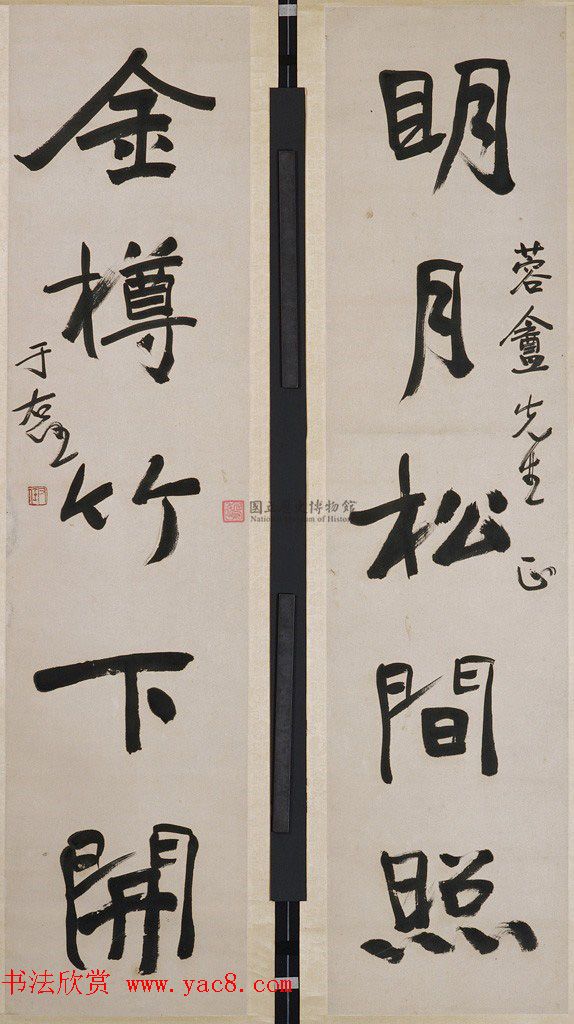 明月松間照
蓉盦先生正
金樽竹下開
于右任
国立歷史博物館
National Museum of History
书法欣赏 www.yac8.com